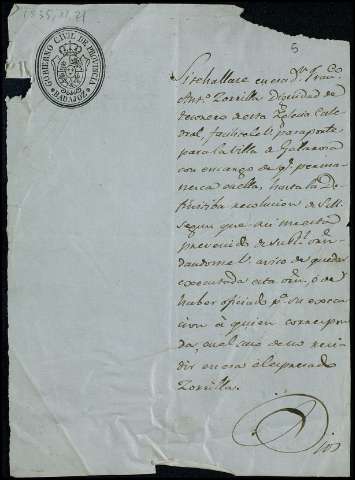 1835, 11, 21
5
GOBIERNO CIVIL DE PROVINCIA
BADAJOZ
Si se hallare en esa Dn. Franco.
Anto. Zorrilla Dignidad de
Tesorero de esta Iglesia Cate
dral, facilítele V. pasaporte
para la Villa de
con encargo de qe. perma
nezca en ella, hasta la De
finitiva resolucion de S. M.
segun que asi me esta
prevenido de Real orn.
dandome V. aviso de quedar
executada esta orn. ó de
haber oficiado pa. su execu
cion á quien correspon
da, en el caso de no resi
dir en esa el expresado
Zorrilla.
Dios